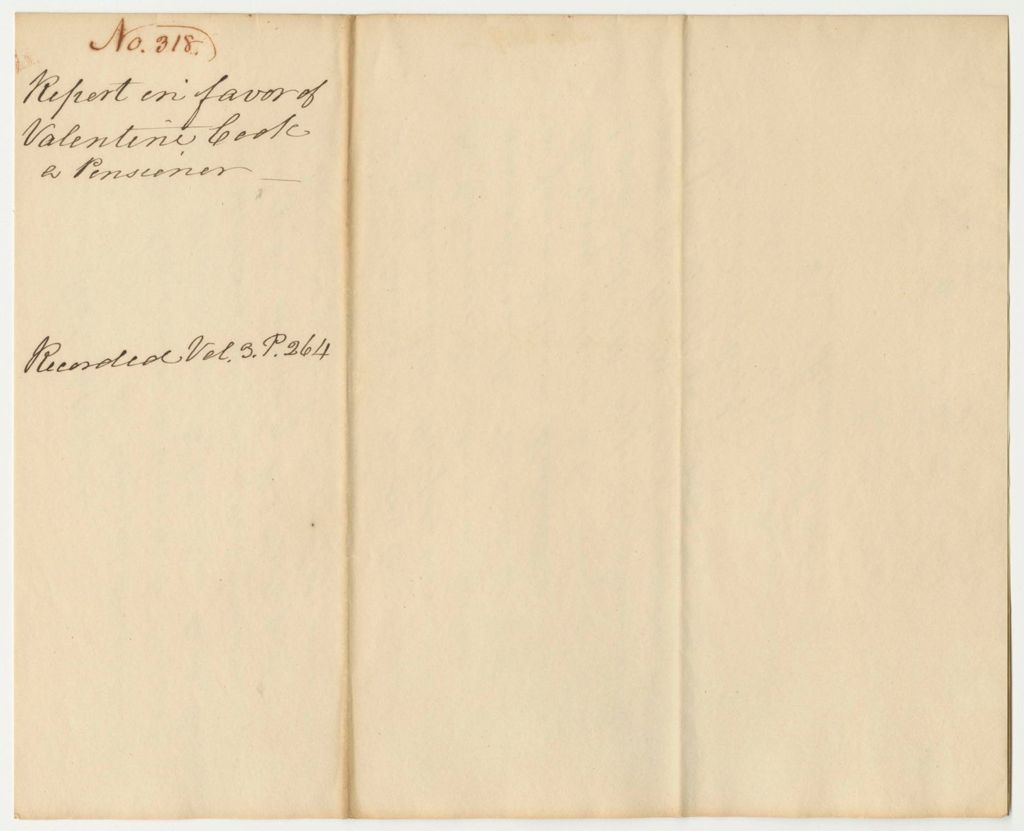 No. 318.
Report in favor of
Valentine Cook
a Pensioner
Recorded Vol. 3. P. 264